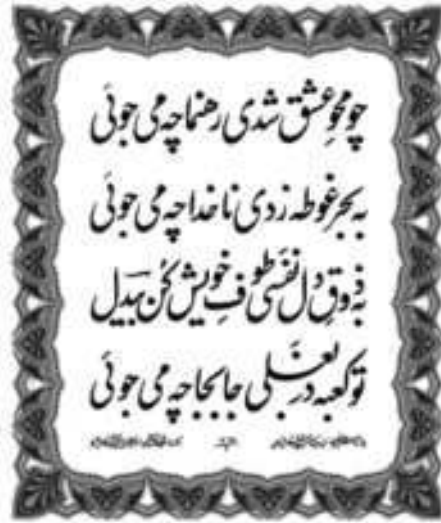 چو محوِ عشق شدی رهنما چه می جوئی
به بحر غوطه زدی ناخدا چه می جوئی
به ذوقِ دل نفسَی طوفِ خویش کُن بیدل
تو کعبه در بغَلی جا بجا چه می جوئی